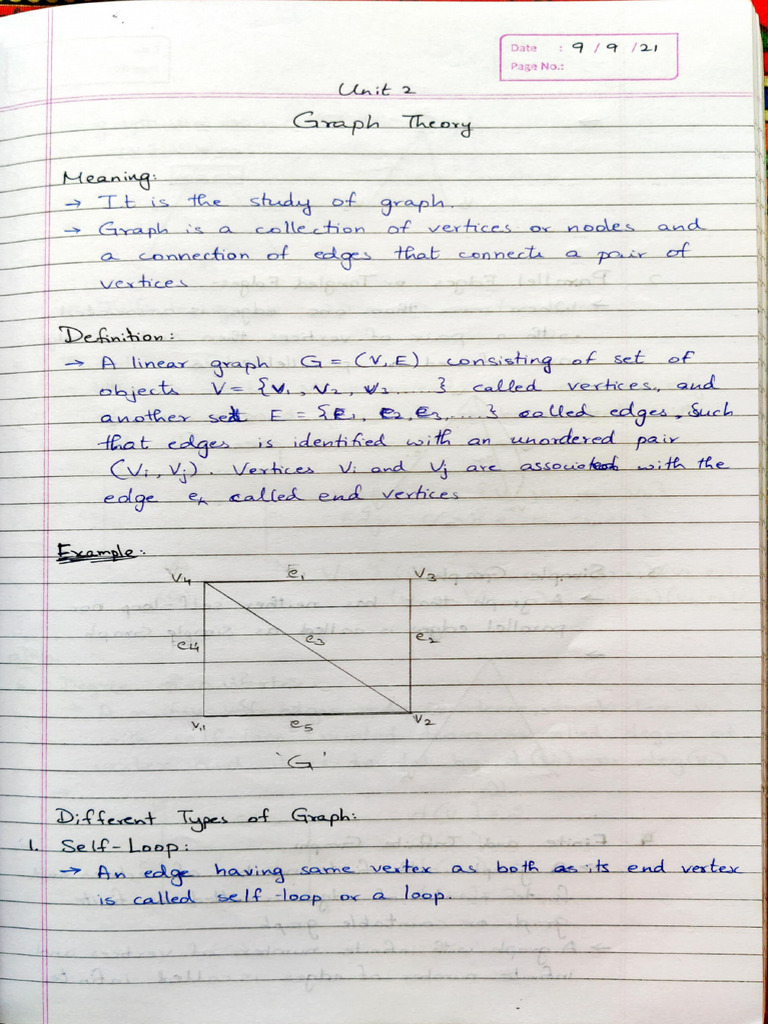 Date : 9 / 9 / 21
Page No.:
Unit 2
Graph Theory
Meaning:
→ It is the study of graph.
→ Graph is a collection of vertices or nodes and
a connection of edges that connects a pair of
vertices
Definition:
→ A linear graph G = (V, E) consisting of set of
objects V = {v1, v2, v3 ....} called vertices, and
another set E = {e1, e2, e3, ....} called edges, Such
that edges is identified with an unordered pair
(Vi, Vj). Vertices Vi and Vj are associated with the
edge ek called end vertices
Example:
V4 e1 V3
e4 e3 e2
V1 e5 V2
'G'
Different Types of Graph:
1. Self-Loop:
→ An edge having same vertex as both as its end vertex
is called self-loop or a loop.